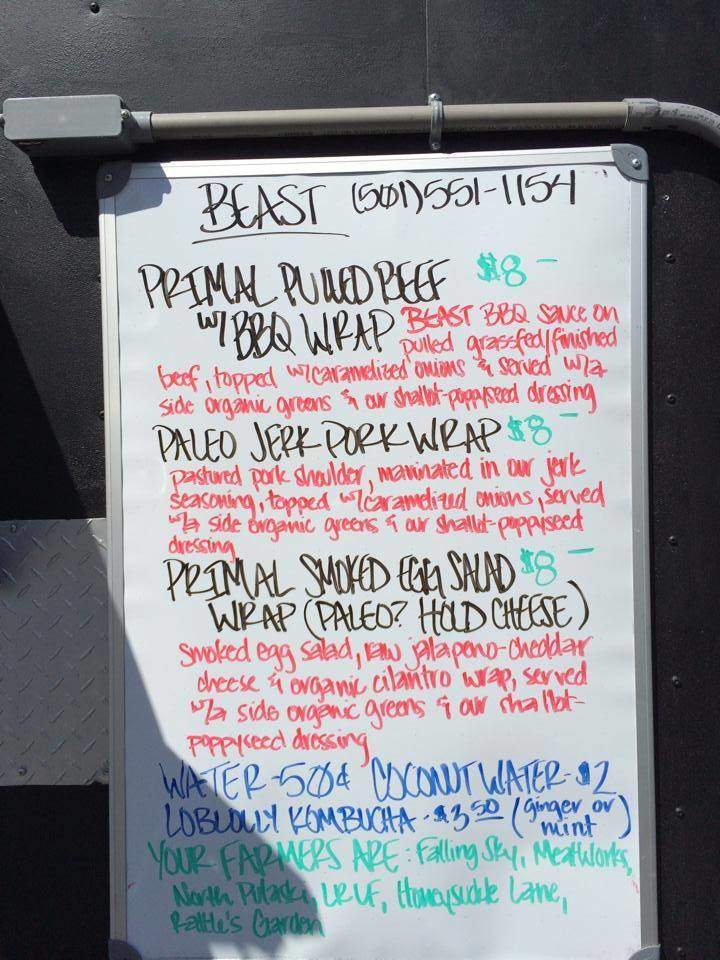 BEAST (501)551-1154
PRIMAL PULLED BEEF $8-
W/ BBQ WRAP BEAST BBQ sauce on
pulled grassfed/finished
beef, topped w/caramelized onions & served w/a
side organic greens & our shallot-poppyseed dressing
PALEO JERK PORK WRAP $8-
pastured pork shoulder, marinated in our jerk
seasoning, topped w/caramelized onions, served
w/a side organic greens & our shallot-poppyseed
dressing
PRIMAL SMOKED EGG SALAD $8-
WRAP (PALEO? HOLD CHEESE)
smoked egg salad, raw jalapeno-cheddar
cheese & organic cilantro wrap, served
w/a side organic greens & our shallot-
poppyseed dressing
WATER-50¢ COCONUT WATER-$2
LOBLOLLY KOMBUCHA-$3.50 (ginger or
mint)
YOUR FARMERS ARE: Falling Sky, MeatWorks,
North Pulaski, LRUF, Honeysuckle Lane,
Rattle's Garden